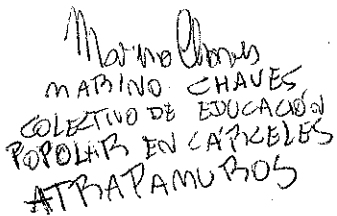 Marino Chaves
MARINO CHAVES
COLECTIVO DE EDUCACIÓN
POPOLAR EN CÁRCELES
ATRAPAMUROS